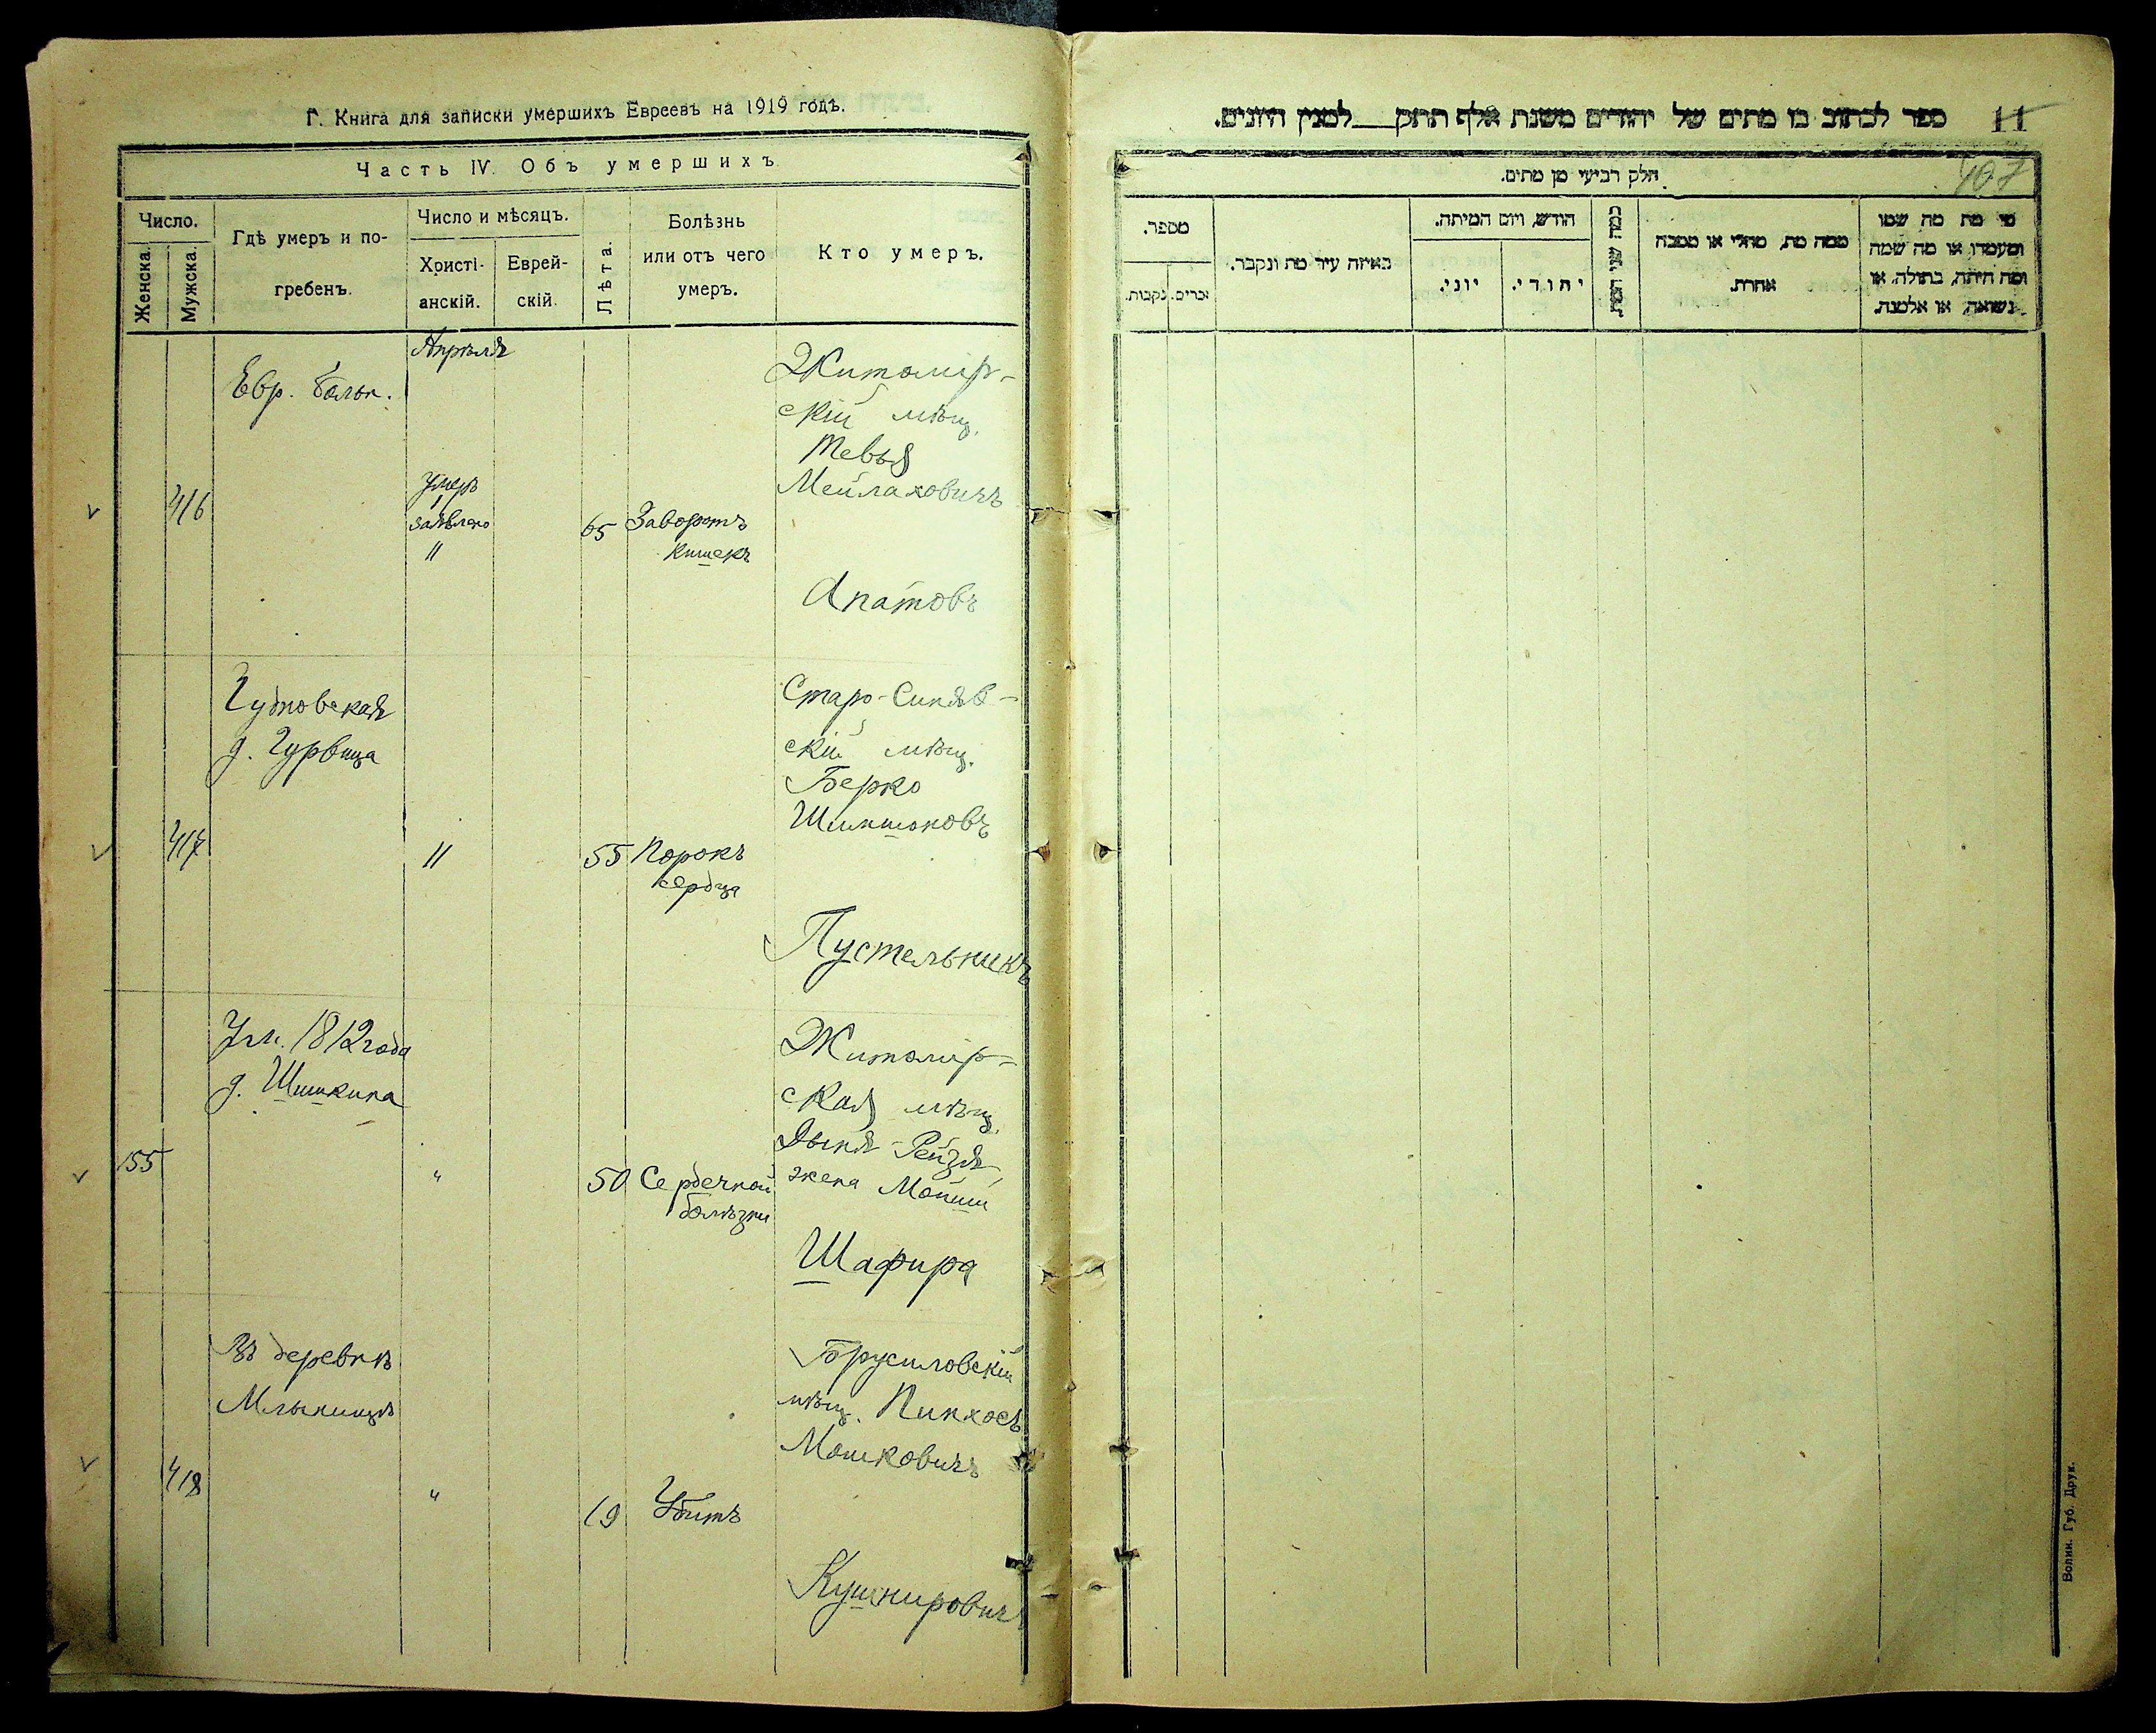 Г. Книга для записки умершихъ Евреевъ на 1919 годъ.
Часть IV. Объ умершихъ
Число.
Женска.
Мужска.
Гдѣ умеръ и по-
гребенъ.
Число и мѣсяцъ.
Христі-
анскій.
Еврей-
скій.
Лѣта.
Болѣзнь
или отъ чего
умеръ.
Кто умеръ.
Апрѣля
Евр. больн.
416
Умеръ
1
заявлено
11
65
Заворотъ
кишекъ
Житомір-
скій мѣщ.
Тевья
Мейлаховичъ
Апатовъ
Чудновская
д. Гурвица
417
11
55
Порокъ
сердца
Старо-Синяв-
скій мѣщ.
Берко
Шимшоновъ
Пустельникъ
Ул. 1812 года
д. Шишкина
155
"
50
Сердечной
болѣзни
Житомір-
ская мѣщ.
Рейзя,
жена Мойши
Шафира
Въ деревнѣ
418
"
19
Убитъ
Брусиловскій
мѣщ. Пинхосъ
Мошковичъ
Кушнировичъ
ספר לכתוב בו מתים של יהודים משנת אלף תתק__למנין היונים.
11
407
חלק רביעי מן מתים.
מספר.
זכרים.
נקבות.
באיזה עיר מת ונקבר.
חודש, ויום המיתה.
יוני.
יהודי.
כמה שני המת
ממה מת, מחלי או מסבה
אחרת.
מי מת מה שמו
ומעמדו או מה שמה
ומה היתה, בתולה, או
נשואה, או אלמנה.
Волин. Губ. Друк.